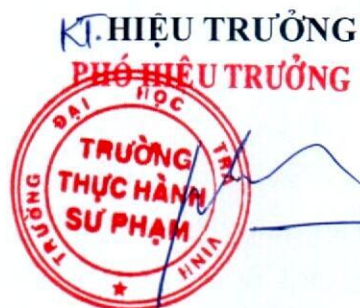 KT. HIỆU TRƯỞNG
PHÓ HIỆU TRƯỞNG
TRƯỜNG ĐẠI HỌC TRÀ VINH
TRƯỜNG
THỰC HÀNH
SƯ PHẠM